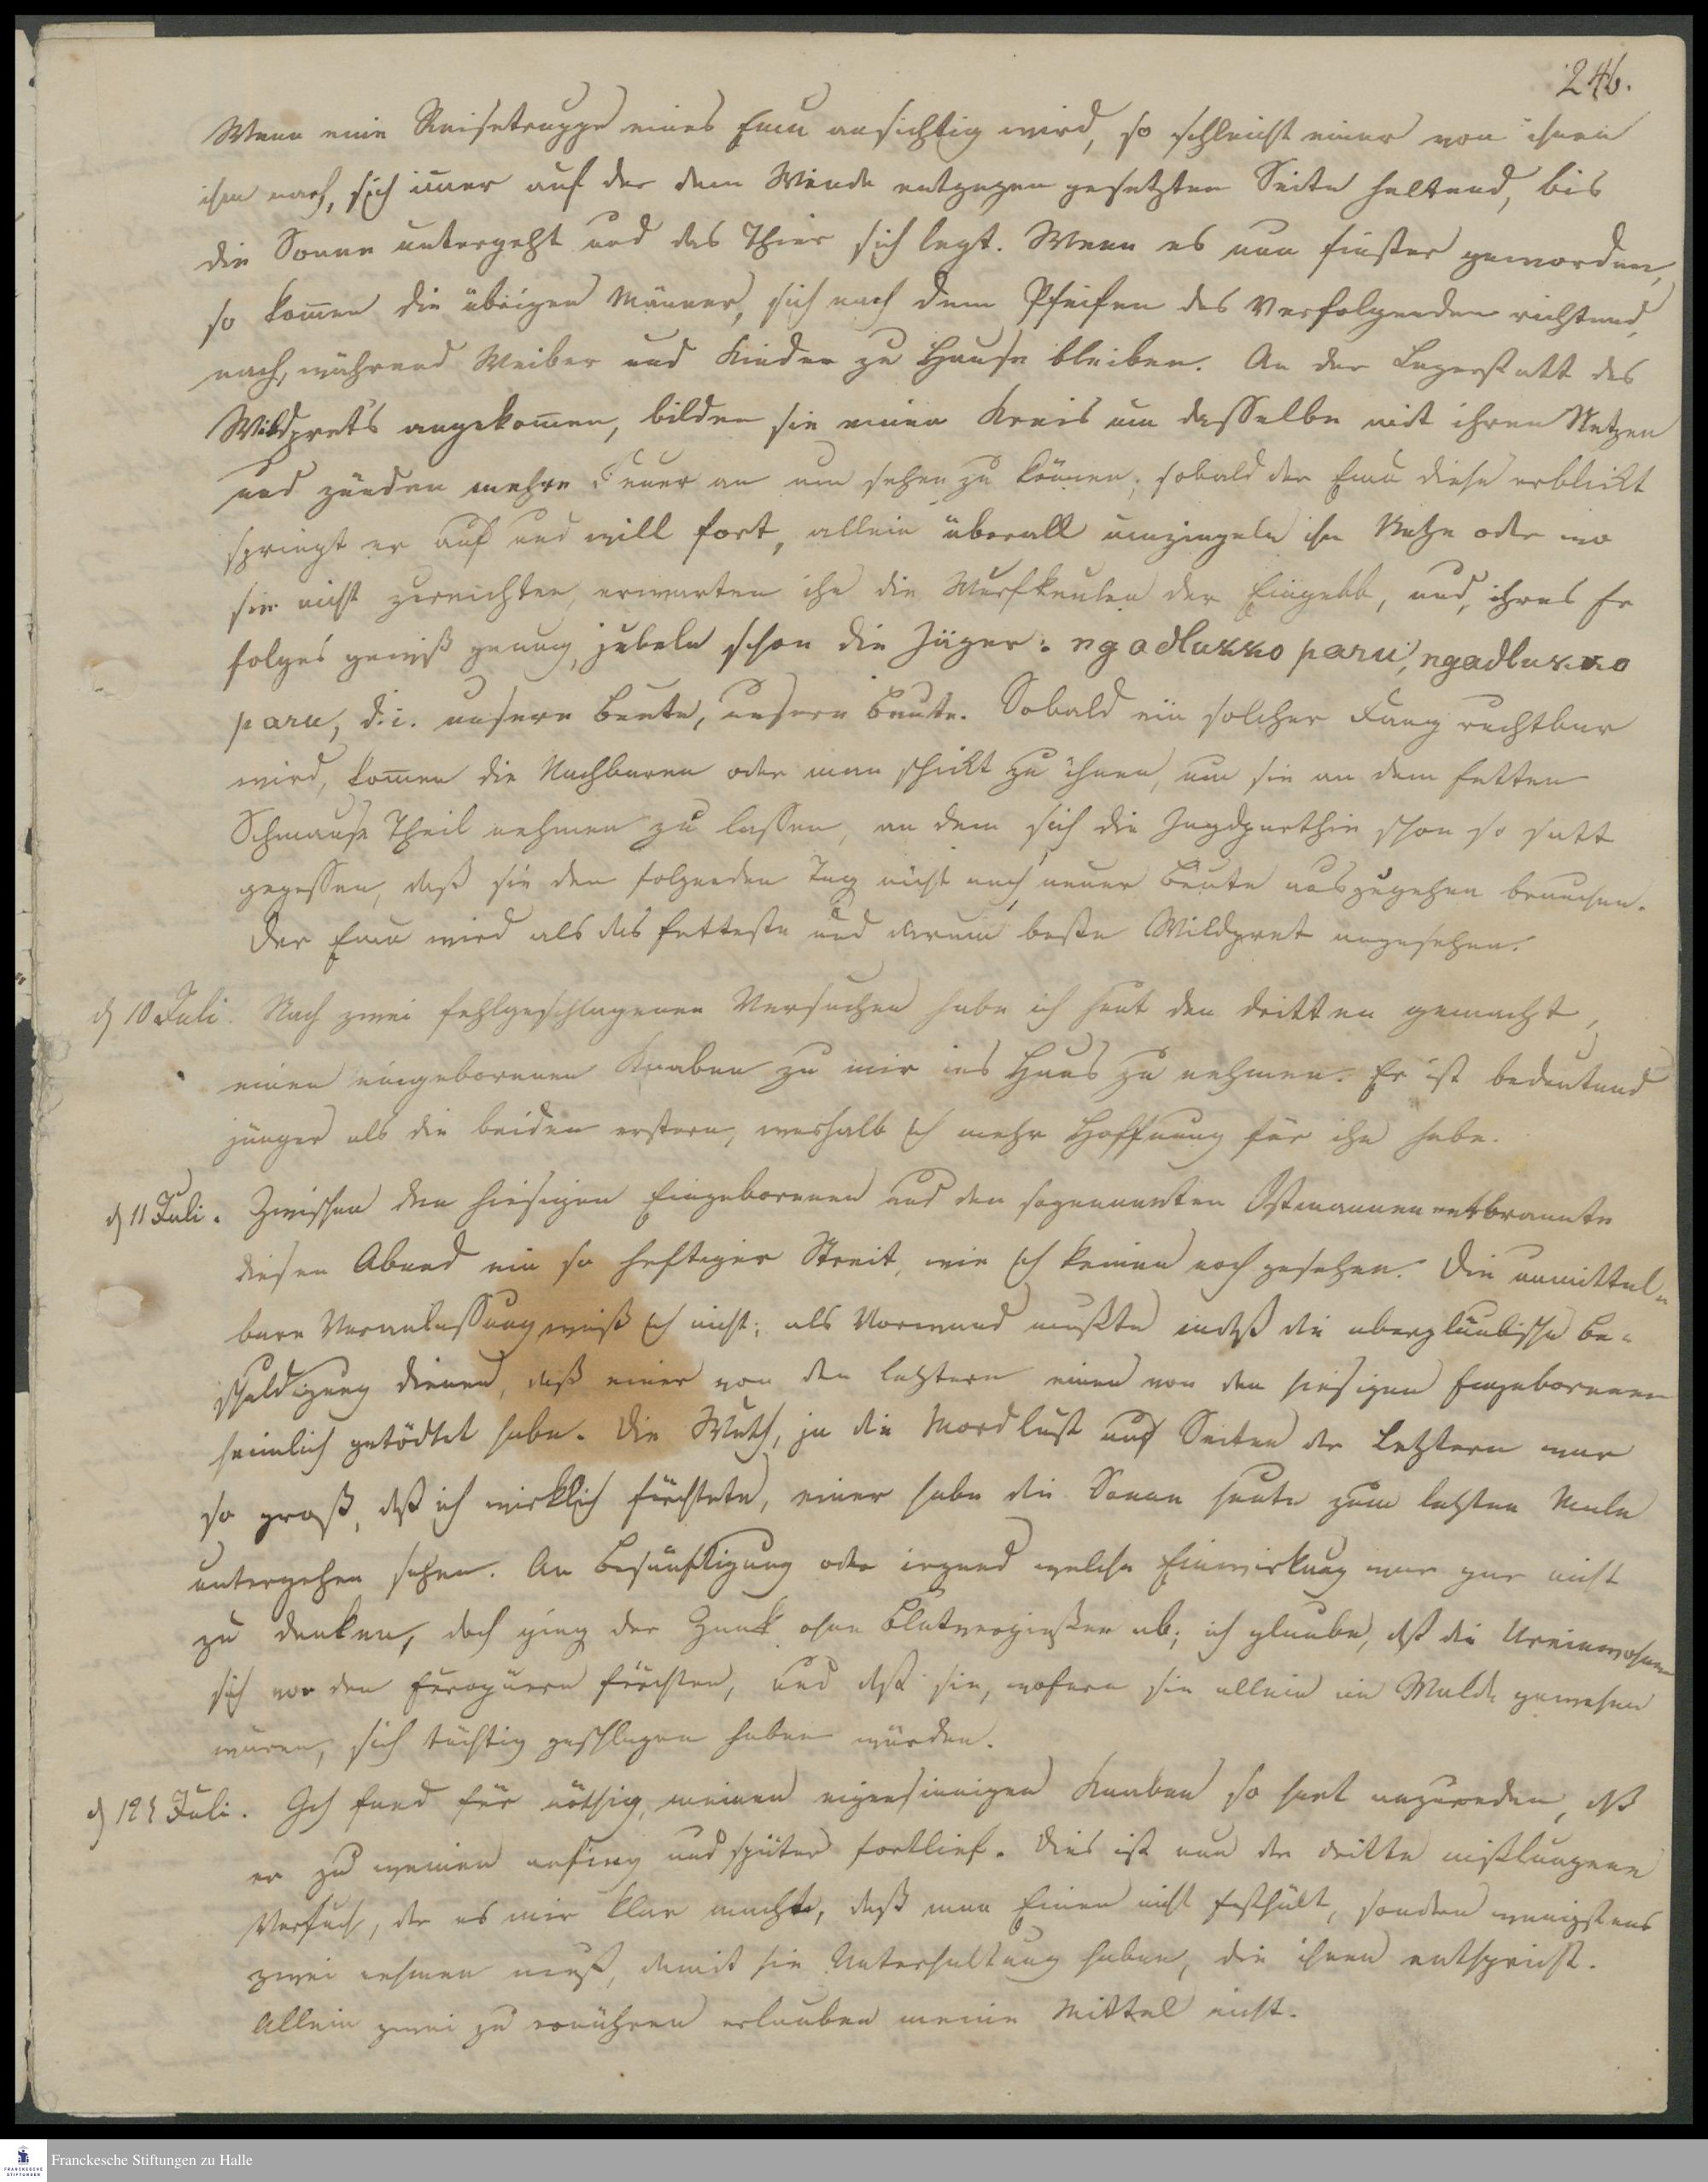 246.
Wenn eine Reisetruppe eines Emu ansichtig wird, so schleicht einer von ihnen
ihm nach, sich im̄er auf der dem Winde entgegen gesetzten Seite haltend, bis
die Sonne untergeht und das Thier sich legt. Wenn es nun finster geworden,
so kom̄en die übrigen Männer, sich nach dem Pfeifen des Verfolgenden richtend,
nach, während Weiber und Kinder zu Hause bleiben. An der Lagerstatt des
Wildprets angekom̄en, bilden sie einen Kreis um dasselbe mit ihren Netzen
und zünden mehre Feuer an um sehen zu können; sobald der Emu diese erblickt
springt er auf und will fort, allein überall umzingeln ihn Netze oder wo
sie nicht zureichten, erwarten ihn die Wurfkeulen der Eingebb, und, ihres Er
folges gewiß genug, jubeln schon die Jäger: ngadlukko paru, ngadlukko
paru, d.i. unsere Beute, unsere Beute. Sobald ein solcher Fang ruchtbar
wird, kom̄en die Nachbaren oder man schickt zu ihnen, um sie an dem fetten
Schmause Theil nehmen zu lassen, an dem sich die Jagdparthie schon so satt
gegessen, daß sie den folgenden Tag nicht nach neuer Beute auszugehen brauchen.
Der Emu wird als das fetteste und darum beste Wildpret angesehen.
d 10 Juli. Nach zwei fehlgeschlagenen Versuchen habe ich heut den dritten gemacht,
einen eingeborenen Knaben zu mir ins Haus zu nehmen. Er ist bedeutend
jünger als die beiden erstern, weshalb ich mehr Hoffnung für ihn habe.
d 11 Juli. Zwischen den hiesigen Eingeborenen und den sogenannten Ostmannen entbrannte
diesen Abend ein so heftiger Streit, wie ich keinen noch gesehen. Die unmittel-
bare Veranlassung weiß ich nicht; als Vorwand mußte indeß die abergläubische Be-
schuldigung dienen, daß einer von den letztern einen von den hiesigen Eingeborenen
heimlich getödtet habe. Die Wuth, ja die Mordlust auf Seiten der Letztern war
so groß, daß ich wirklich fürchtete, einer habe die Sonne heute zum letzten Male
untergehen sehen. An Besänftigung oder irgend welche Einwirkung war gar nicht
zu denken, doch ging der Zank ohne Blutvergießen ab; ich glaube, daß die Ureinwohner
sich vor den Europäern fürchten, und daß sie, wofern sie allein im Walde gewesen
wären, sich tüchtig geschlagen haben würden.
d 12t Juli. Ich fand für nöthig, meinen eigensinnigen Knaben so hart anzureden, daß
er zu weinen anfing und später fortlief. Dies ist nun der dritte mißlungene
Versuch, der es mir klar machte, daß man Einen nicht festhält, sondern wenigstens
zwei nehmen muß, damit sie Unterhaltung haben, die ihnen entspricht.
Allein zwei zu ernähren erlauben meine Mittel nicht.
Franckesche Stiftungen zu Halle